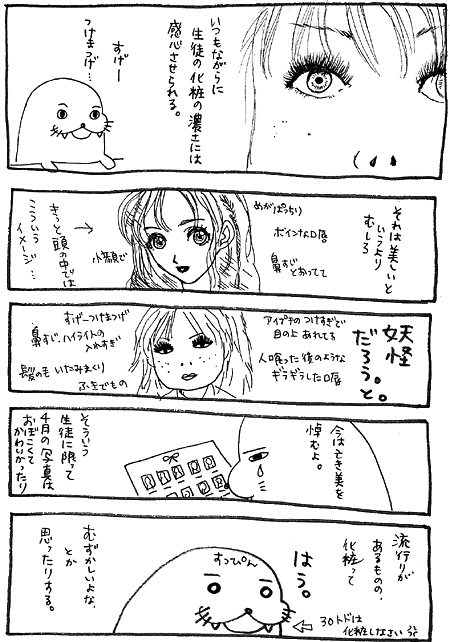 いつもながらに
生徒の化粧の濃さには
感心させられる。
すげー
つけまつげ…
それは美しいと
いうより
むしろ
めがぱっちり
ポイントなロ唇
鼻すじ
とおってて
小顔で
→
きっと頭の中では
こういう
イメージ…
妖怪
だろう。と。
アイプチのつけすぎで
目の上あれてる
人喰った後のような
ギラギラした口唇
すげーつけまつげ
鼻すじ、ハイライトの
入れすぎ
髪のもいたみまくり
ふきでもの
今は亡き美を
悼むよ。
そういう
生徒に限って
4月の写真は
おぼこくて
かわいかったり
流行りが
あるものの、
化粧って
はぅ。
すっぴん
むずかしいよな、
とか
思ったりする。
⇦ 30トドは
化粧しなさい